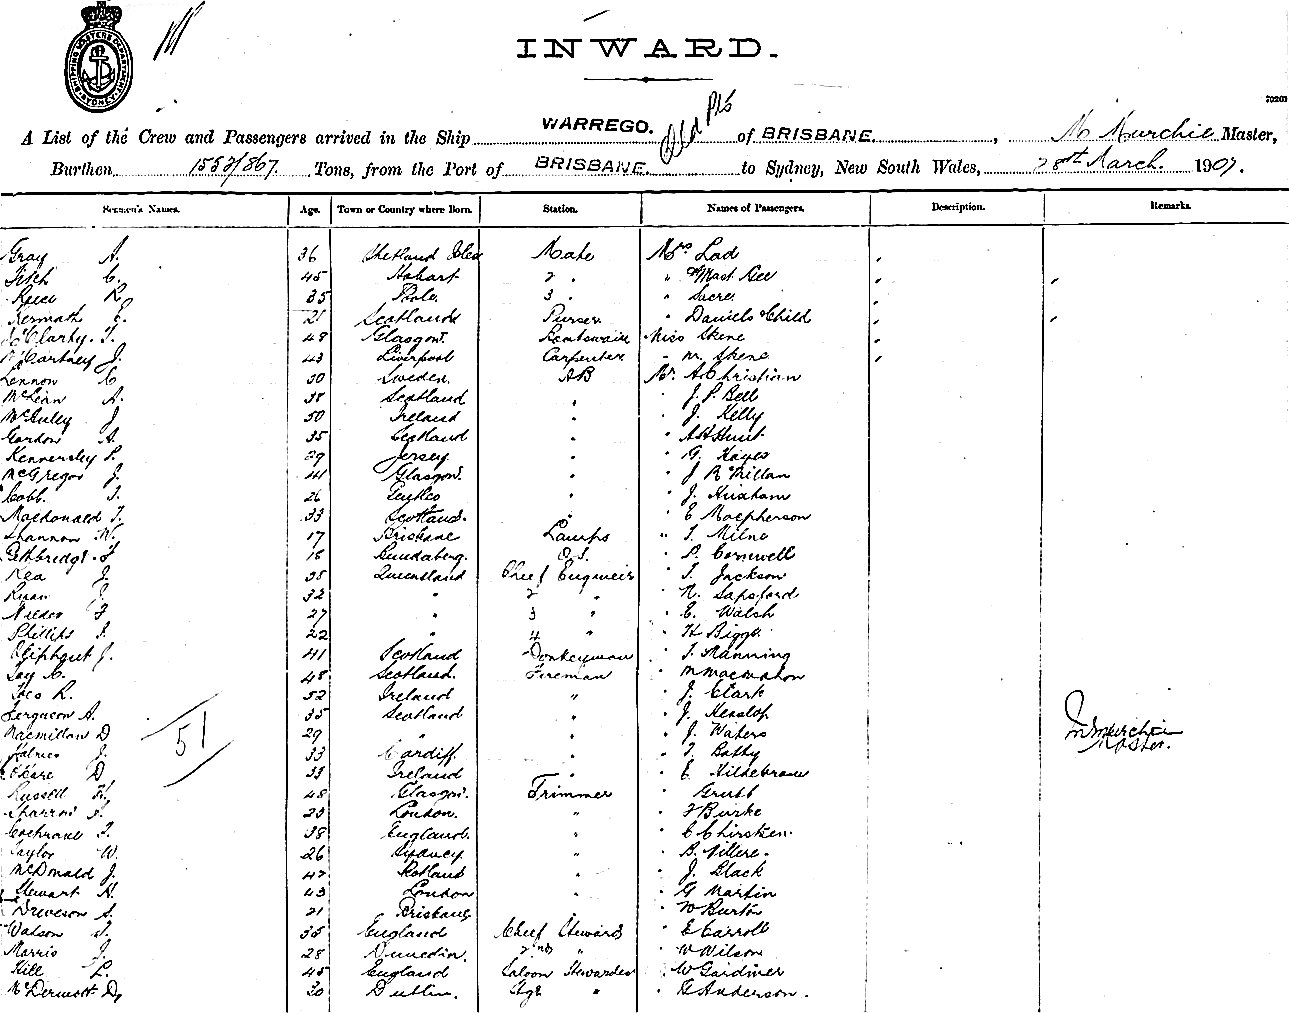 SHIPPING MASTERS DEPARTMENT SYDNEY
INWARD.
70203
A List of the Crew and Passengers arrived in the Ship WARREGO. of BRISBANE. , M Murchie Master,
Burthen 1552/867. Tons, from the Port of BRISBANE. to Sydney, New South Wales, 28th March. 1907.
Seamen's Names. Age. Town or Country where Born. Station. Names of Passengers. Description. Remarks.
Gray A. 36 Shetland Isles Mate Mrs Lad
Fitch C. 45 Hobart 2 " "
R. 35 Poole 3 " " Sacre
E. 21 Scotland Purser " Daniels & Child
McClarty. T. 48 Glasgow. Boatswain Miss Skene
McCartney J. 43 Liverpool Carpenter " M. Skene
Lennon C 30 Sweden. AB Mr A Christian
McLean A. 38 Scotland " " J. P. Bell
McAuley J 50 Ireland " " J. Kelly
Gordon A. 35 Scotland " " A H Hunt
Kennersley P. 29 Jersey " " G. Hayes
McGregor J. 41 Glasgow. " " J McMillan
Cobb. T. 26 " " J.
Macdonald T. 33 Scotland. " " E Macpherson
Shannon W. 17 Brisbane Lamps " T. Milne
18 Bundaberg. O.S. " P. Cornwell
Rea J. 38 Queensland Chief Engineer " T. Jackson
J. 32 " 2 " " N. Sapsford
F 27 " 3 " " E. Walsh
Phillips J. 22 " 4 " " H Biggs
Oliphant J. 41 Scotland Donkeyman " T. Manning
48 Scotland. Fireman " M Macmahon
R. 52 Ireland " " J. Clark
Ferguson A. 35 Scotland " " J. Heslop
Macmillan D 29 " " " J. Waters
Holmes J. 33 Cardiff " " T. Batty
O'Hare D, 33 Ireland " " E Hildebrand
Russell H, 48 Glasgow. Trimmer " Grubb
Sparrow 23 London. " " F Burke
Cochrane T. 38 England. " " C
Taylor W. 26 Sydney " " B.
McDonald J. 42 Scotland " " J. Black
Stewart H. 43 London " " G Martin
S. 21 Brisbane " W Burton
Watson T. 35 England Chief Steward " E Carroll
Morris J. 28 Dunedin. 2nd " " W Wilson
Hill L. 45 England Saloon Stewardess " W Gardiner
McDermott D, 30 Dublin. " " G Anderson.
51
M Murchie
Master.